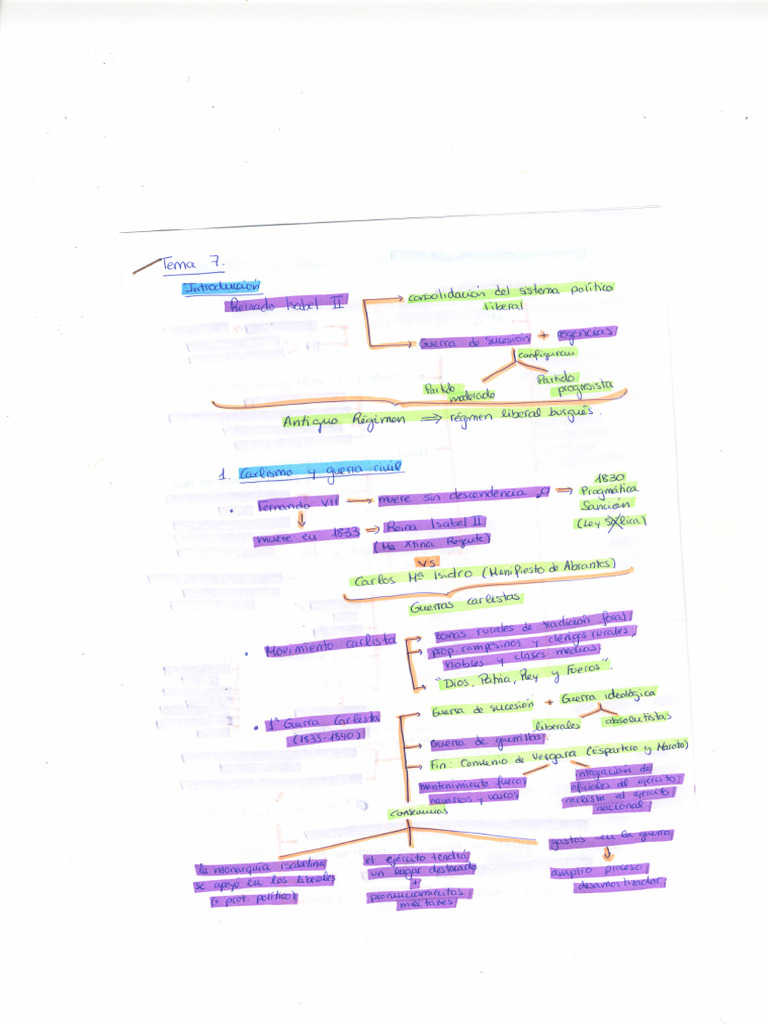 Tema 7.
Introducción
Reinado Isabel II
consolidación del sistema político
liberal
Guerra de sucesión + regencias
configuran
Partido
moderado
Partido
progresista
Antiguo Régimen ⇒ régimen liberal burgués.
1. Carlismo y guerra civil
Fernando VII → muere sin descendencia ♂ ⇒ 1830
Pragmática
Sanción
(Ley Sálica)
muere en 1833 ⇒ Reina Isabel II
(Mª Xtina Regente)
VS
Carlos Mª Isidro (Manifiesto de Abrantes)
Guerras carlistas
Movimiento carlista
zonas rurales de tradición foral
prop. campesinos y clérigos rurales,
nobles y clases medias
"Dios, Patria, Rey y Fueros".
1ª Guerra Carlista
(1833-1840)
Guerra de sucesión + Guerra ideológica
liberales
absolutistas
Guerra de guerrillas.
Fin: Convenio de Vergara (Espartero y Maroto)
mantenimiento fueros
navarros y vascos
integración de
oficiales del ejército
carlista al ejército
nacional.
consecuencias
la monarquía isabelina
se apoyó en los liberales
(+ prot. político)
el ejército tendrá
un lugar destacado
+
pronunciamientos
militares
gastos en la guerra
amplio proceso
desamortizador.